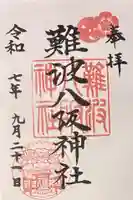 奉拝
難波八阪神社
令和七年九月二十一日